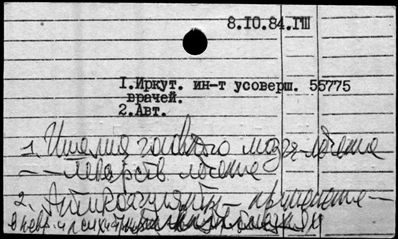 8.IO.84.ГШ
I.Иркут. ин-т усоверш. 55775
врачей.
2.Авт.
1. Ишемия головного мозга - лечение
— лекарств. лечение
2. Антикоагулянты - применение -
в невр. и психиатрии